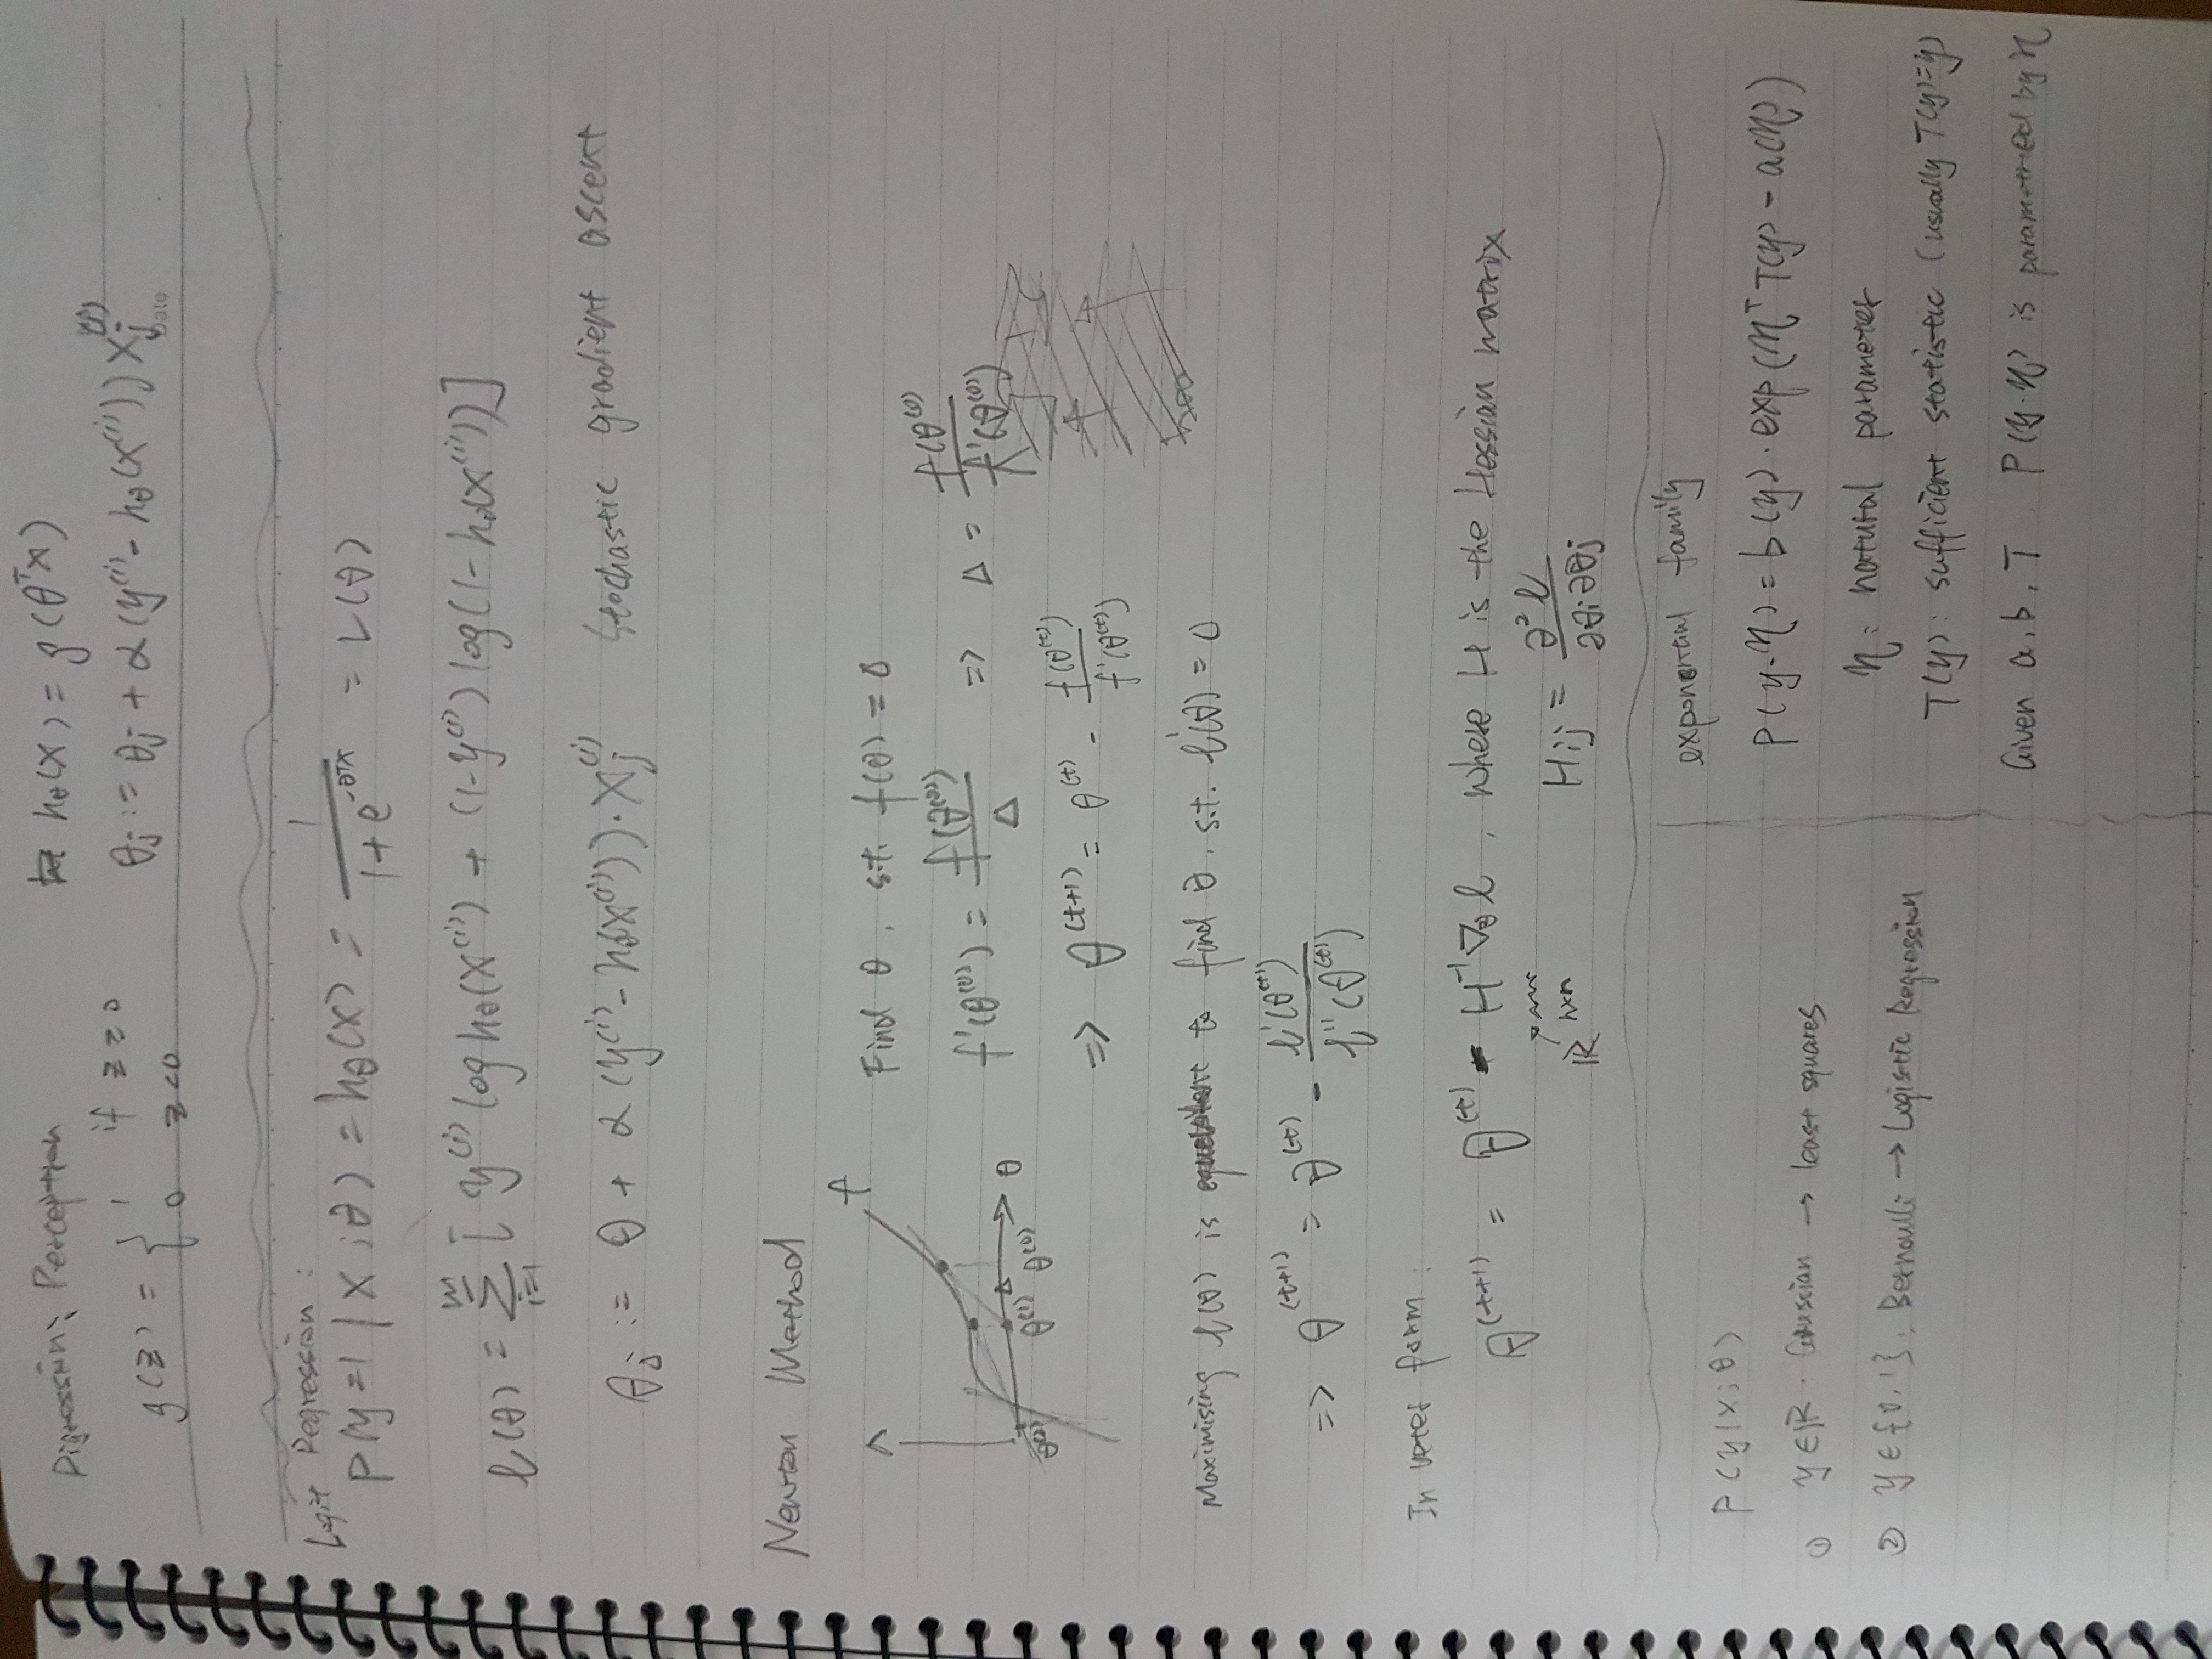 Digression: Perceptron
hθ(x) = g(θᵀx)
g(z) = { 1 if z ≥ 0
0 z<0
θj := θj + α(y⁽ⁱ⁾ - hθ(x⁽ⁱ⁾)) xj⁽ⁱ⁾
Date
Logit Regression:
P(y=1 | x; θ) = hθ(x) = 1/(1+e^(-θᵀx)) = L(θ)
ℓ(θ) = Σ_{i=1}^{m} [ y⁽ⁱ⁾ log hθ(x⁽ⁱ⁾) + (1-y⁽ⁱ⁾) log(1-hθ(x⁽ⁱ⁾)) ]
θj := θ + α (y⁽ⁱ⁾ - hθ(x⁽ⁱ⁾)) · xj⁽ⁱ⁾ Stochastic gradient ascent
Newton Method
f
θ
θ⁽²⁾ θ⁽¹⁾ Δ θ⁽⁰⁾
Find θ, s.t. f(θ) = 0
f'(θ⁽⁰⁾) = f(θ⁽⁰⁾)/Δ => Δ = f(θ⁽⁰⁾)/f'(θ⁽⁰⁾)
=> θ^(t+1) = θ^(t) - f(θ^(t))/f'(θ^(t))
Maximising ℓ(θ) is equivalent to find θ. s.t. ℓ'(θ) = 0
=> θ^(t+1) = θ^(t) - ℓ'(θ^(t))/ℓ''(θ^(t))
In form:
θ^(t+1) = θ^(t) - H⁻¹ ∇θ ℓ, where H is the Hessian matrix
ℝ^(n×n)
Hij = ∂²ℓ/∂θi∂θj
P(y|x; θ)
① y∈ℝ. Gaussian → least squares
② y∈{0,1}: Bernoulli → Logistic Regression
exponential family
P(y.η) = b(y)·exp(ηᵀ T(y) - a(η))
η: natural parameter
T(y): sufficient statistic (usually T(y)=y)
Given a, b, T. P(y.η) is parametrized by η